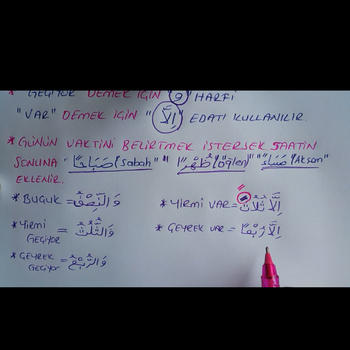 * GEÇİYOR DEMEK İÇİN (و) HARFİ
"VAR" DEMEK İÇİN "إِلَّا" EDATI KULLANILIR
* GÜNÜN VAKTİNİ BELİRTMEK İSTERSEK SAATİN
SONUNA "صَبَاحًا (Sabah)" "ظُهْرًا (öğlen)" "مَسَاءً (Akşam)"
EKLENİR.
* BUÇUK = وَالنِّصْفُ
* YİRMİ GEÇİYOR = وَالثُّلُثُ
* ÇEYREK GEÇİYOR = وَالرُّبْعُ
* YİRMİ VAR = إِلَّا ثُلُثًا
* ÇEYREK VAR = إِلَّا رُبْعًا